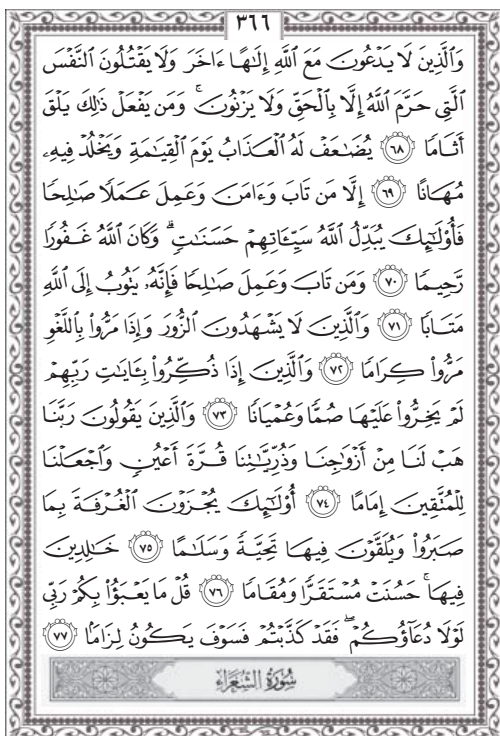 ٣٦٦
وَٱلَّذِينَ لَا يَدْعُونَ مَعَ ٱللَّهِ إِلَٰهًا ءَاخَرَ وَلَا يَقْتُلُونَ ٱلنَّفْسَ
ٱلَّتِى حَرَّمَ ٱللَّهُ إِلَّا بِٱلْحَقِّ وَلَا يَزْنُونَ ۚ وَمَن يَفْعَلْ ذَٰلِكَ يَلْقَ
أَثَامًا ٦٨ يُضَٰعَفْ لَهُ ٱلْعَذَابُ يَوْمَ ٱلْقِيَٰمَةِ وَيَخْلُدْ فِيهِۦ
مُهَانًا ٦٩ إِلَّا مَن تَابَ وَءَامَنَ وَعَمِلَ عَمَلًا صَٰلِحًا
فَأُو۟لَٰٓئِكَ يُبَدِّلُ ٱللَّهُ سَيِّـَٔاتِهِمْ حَسَنَٰتٍ ۗ وَكَانَ ٱللَّهُ غَفُورًا
رَّحِيمًا ٧٠ وَمَن تَابَ وَعَمِلَ صَٰلِحًا فَإِنَّهُۥ يَتُوبُ إِلَى ٱللَّهِ
مَتَابًا ٧١ وَٱلَّذِينَ لَا يَشْهَدُونَ ٱلزُّورَ وَإِذَا مَرُّوا۟ بِٱللَّغْوِ
مَرُّوا۟ كِرَامًا ٧٢ وَٱلَّذِينَ إِذَا ذُكِّرُوا۟ بِـَٔايَٰتِ رَبِّهِمْ
لَمْ يَخِرُّوا۟ عَلَيْهَا صُمًّا وَعُمْيَانًا ٧٣ وَٱلَّذِينَ يَقُولُونَ رَبَّنَا
هَبْ لَنَا مِنْ أَزْوَٰجِنَا وَذُرِّيَّٰتِنَا قُرَّةَ أَعْيُنٍ وَٱجْعَلْنَا
لِلْمُتَّقِينَ إِمَامًا ٧٤ أُو۟لَٰٓئِكَ يُجْزَوْنَ ٱلْغُرْفَةَ بِمَا
صَبَرُوا۟ وَيُلَقَّوْنَ فِيهَا تَحِيَّةً وَسَلَٰمًا ٧٥ خَٰلِدِينَ
فِيهَا ۚ حَسُنَتْ مُسْتَقَرًّا وَمُقَامًا ٧٦ قُلْ مَا يَعْبَؤُا۟ بِكُمْ رَبِّى
لَوْلَا دُعَآؤُكُمْ ۖ فَقَدْ كَذَّبْتُمْ فَسَوْفَ يَكُونُ لِزَامًۢا ٧٧
سُورَةُ الشُّعَرَاءِ